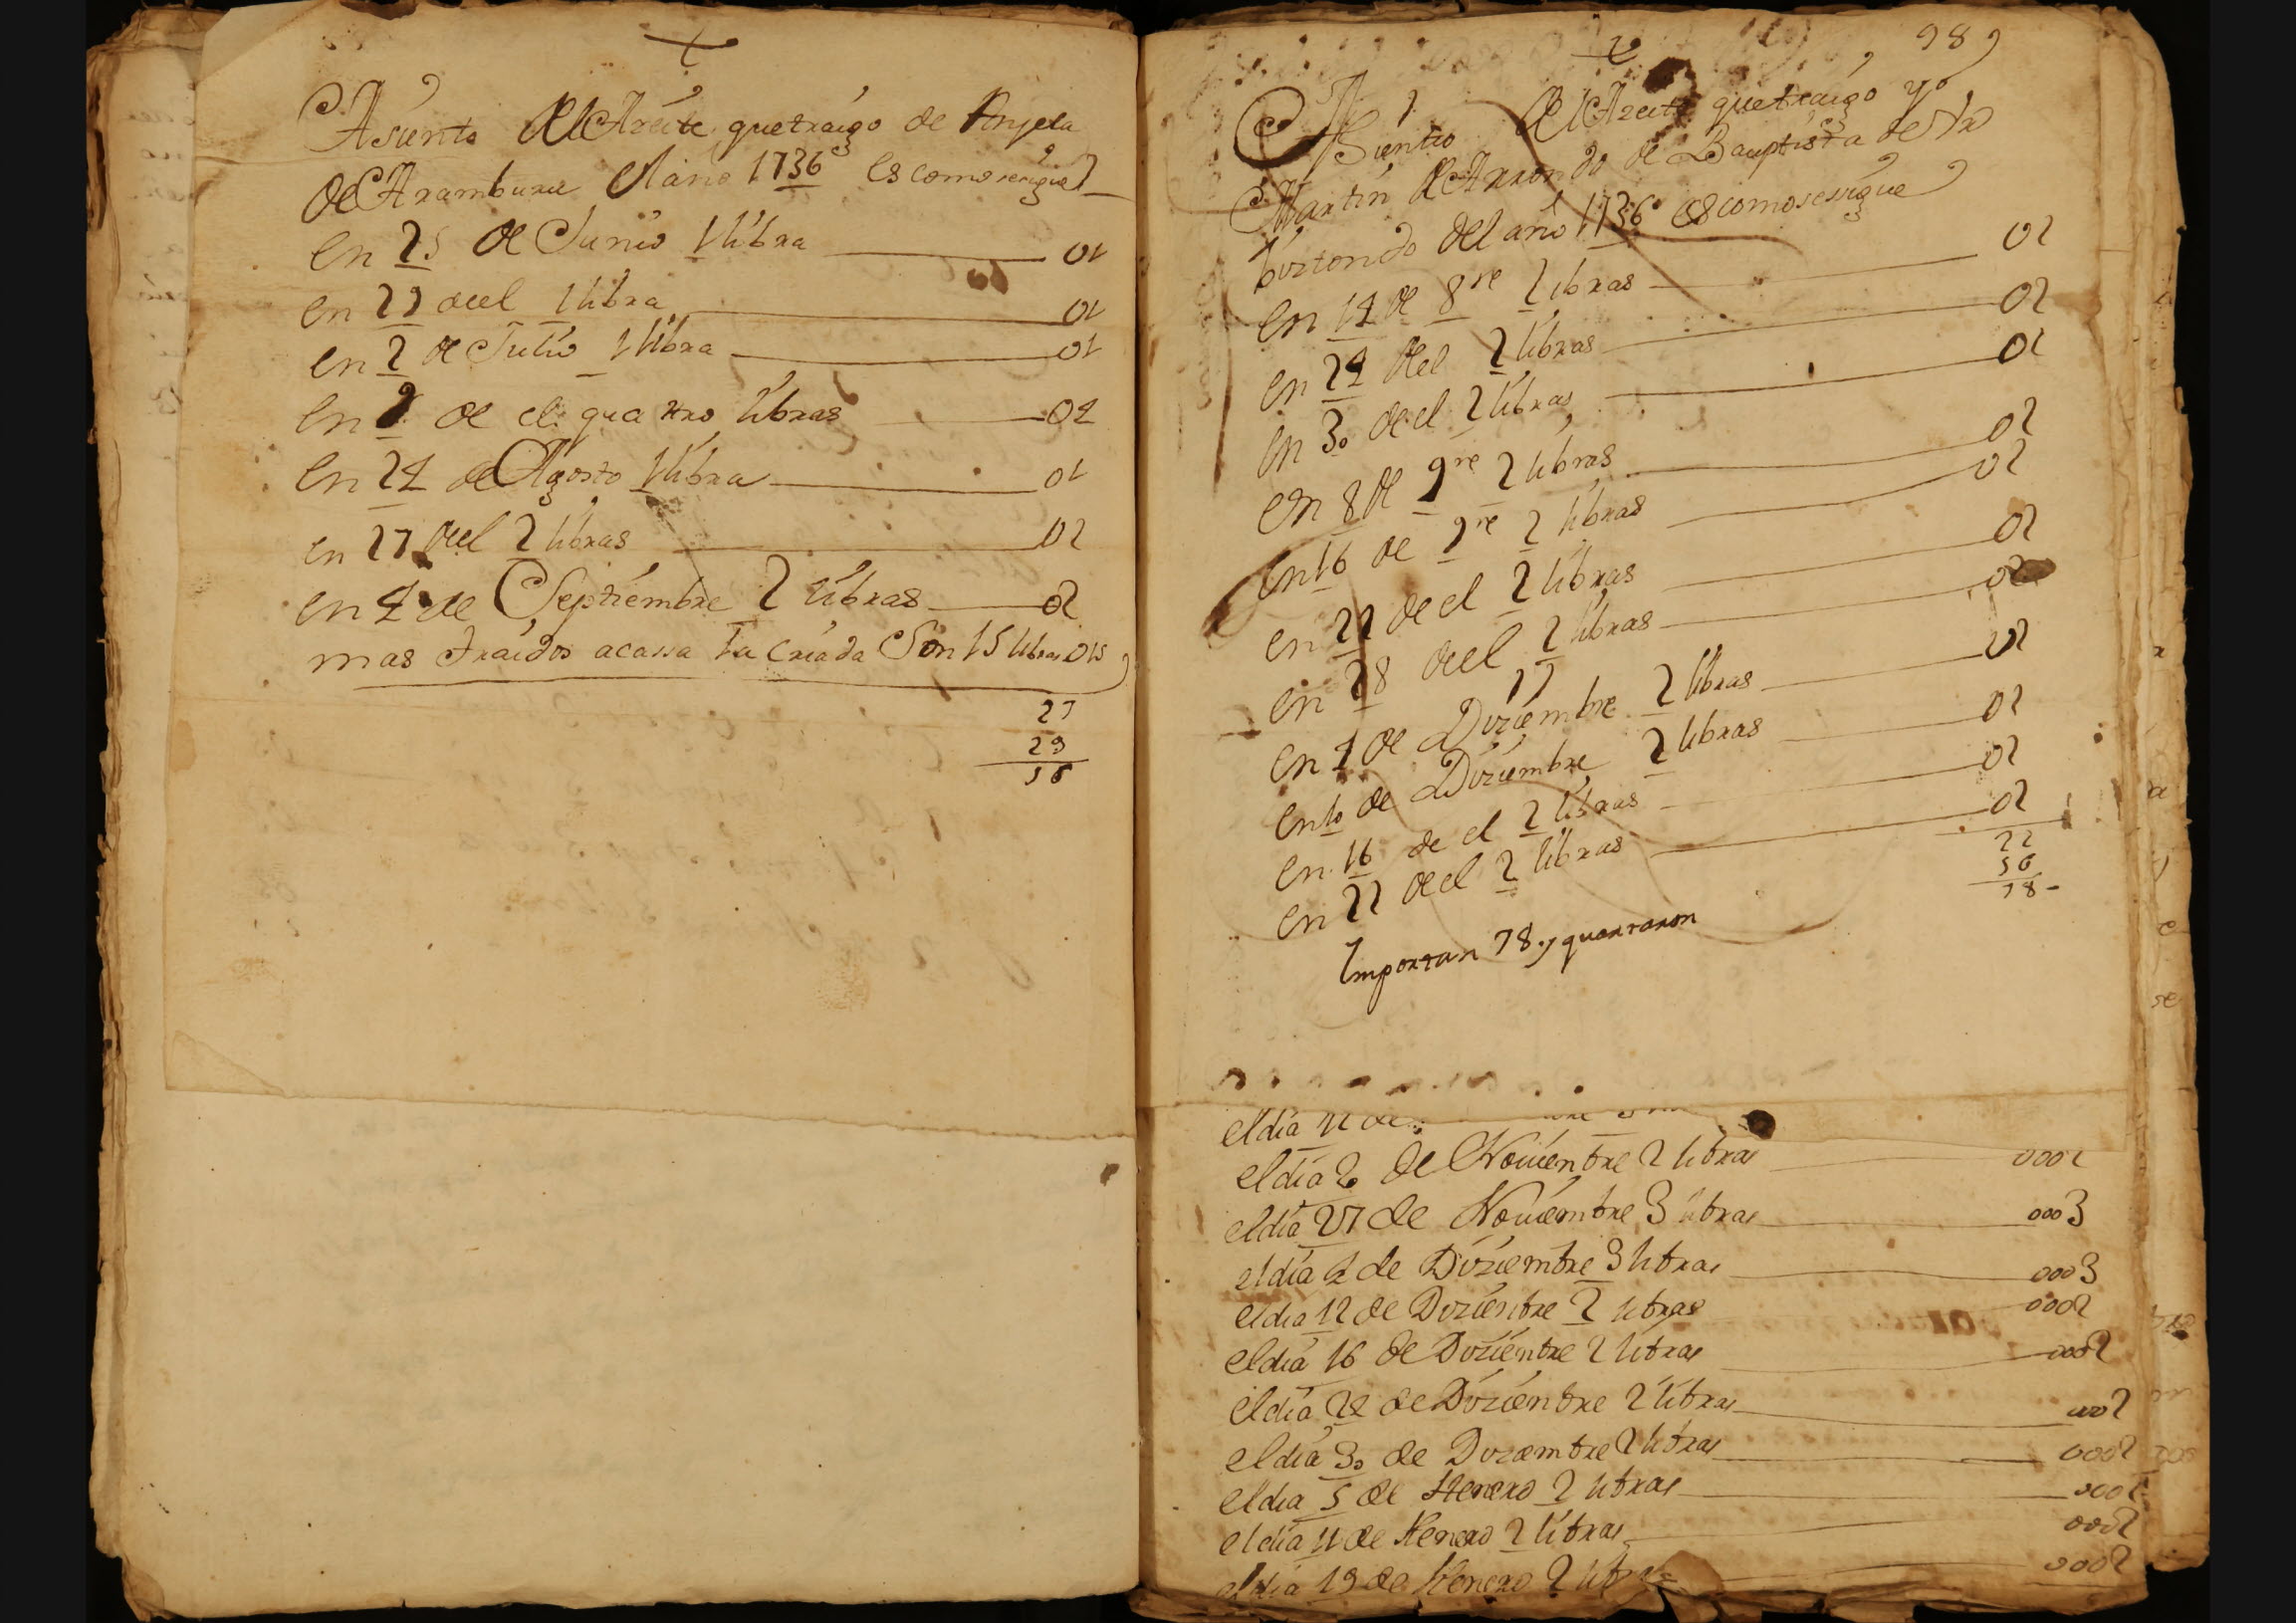 Asiento del Azeite que traigo de Anjela
de Aramburu el año 1736 es como se sigue
en 25 de Junio 1 libra 01
en 29 deel 1 libra 01
en 2 de Julio 1 libra 01
en 9 de el quatro libras 04
en 24 de Agosto 1 libra 01
en 27 deel 2 libras 02
en 4 de Septiembre 2 libras 02
mas traidos a cassa la criada Son 15 libras 015
27
29
56
98
Asiento del Azeite que traigo yo
Martin de Arrondo de Bauptista de
buztondo del año 1736 es como se sigue
en 14 de 8re 2 libras 02
en 24 del 2 libras 02
en 30 de el 2 libras 02
en 8 de 9re 2 libras 02
en 16 de 9re 2 libras 02
en 22 de el 2 libras 02
en 28 deel 2 libras 02
en 4 de Diziembre 2 libras 02
en 10 de Diziembre 2 libras 02
en 16 de el 2 libras 02
en 22 deel 2 libras 02
22
56
78
Importan 78 y quarraron
el dia 12 de
el dia 20 de Nouienbre 2 libras 0002
el dia 27 de Nouiembre 3 libras 0003
el dia 4 de Diziembre 3 libras 0003
el dia 12 de Dizienbre 2 libras 0002
el dia 16 de Dizienbre 2 libras 0002
el dia 24 de Dizienbre 2 libras 0002
el dia 30 de Dizembre 2 libras 0002
el dia 5 de Henero 2 libras 0002
el dia 11 de Henero 2 libras 0002
el dia 19 de Henero 2 0002